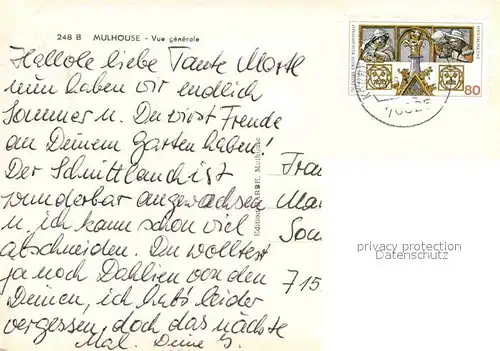 248 B MULHOUSE – Vue générale
Hallole liebe Tante Martl
nun haben wir endlich
Sommer u. Du wirst Freude
an Deinem Garten haben!
Der Schnittlauch ist
wunderbar angewachsen
u. ich kann schon viel
abschneiden. Du wolltest
ja noch Dahlien von den
Deinen, ich hab's leider
vergessen, doch das nächste
Mal. Deine G.
Mulhouse
Frau
Mar
Son
715
DEUTSCHLAND
80
privacy protection
Datenschutz